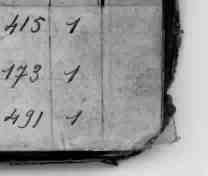 415 1
173 1
491 1